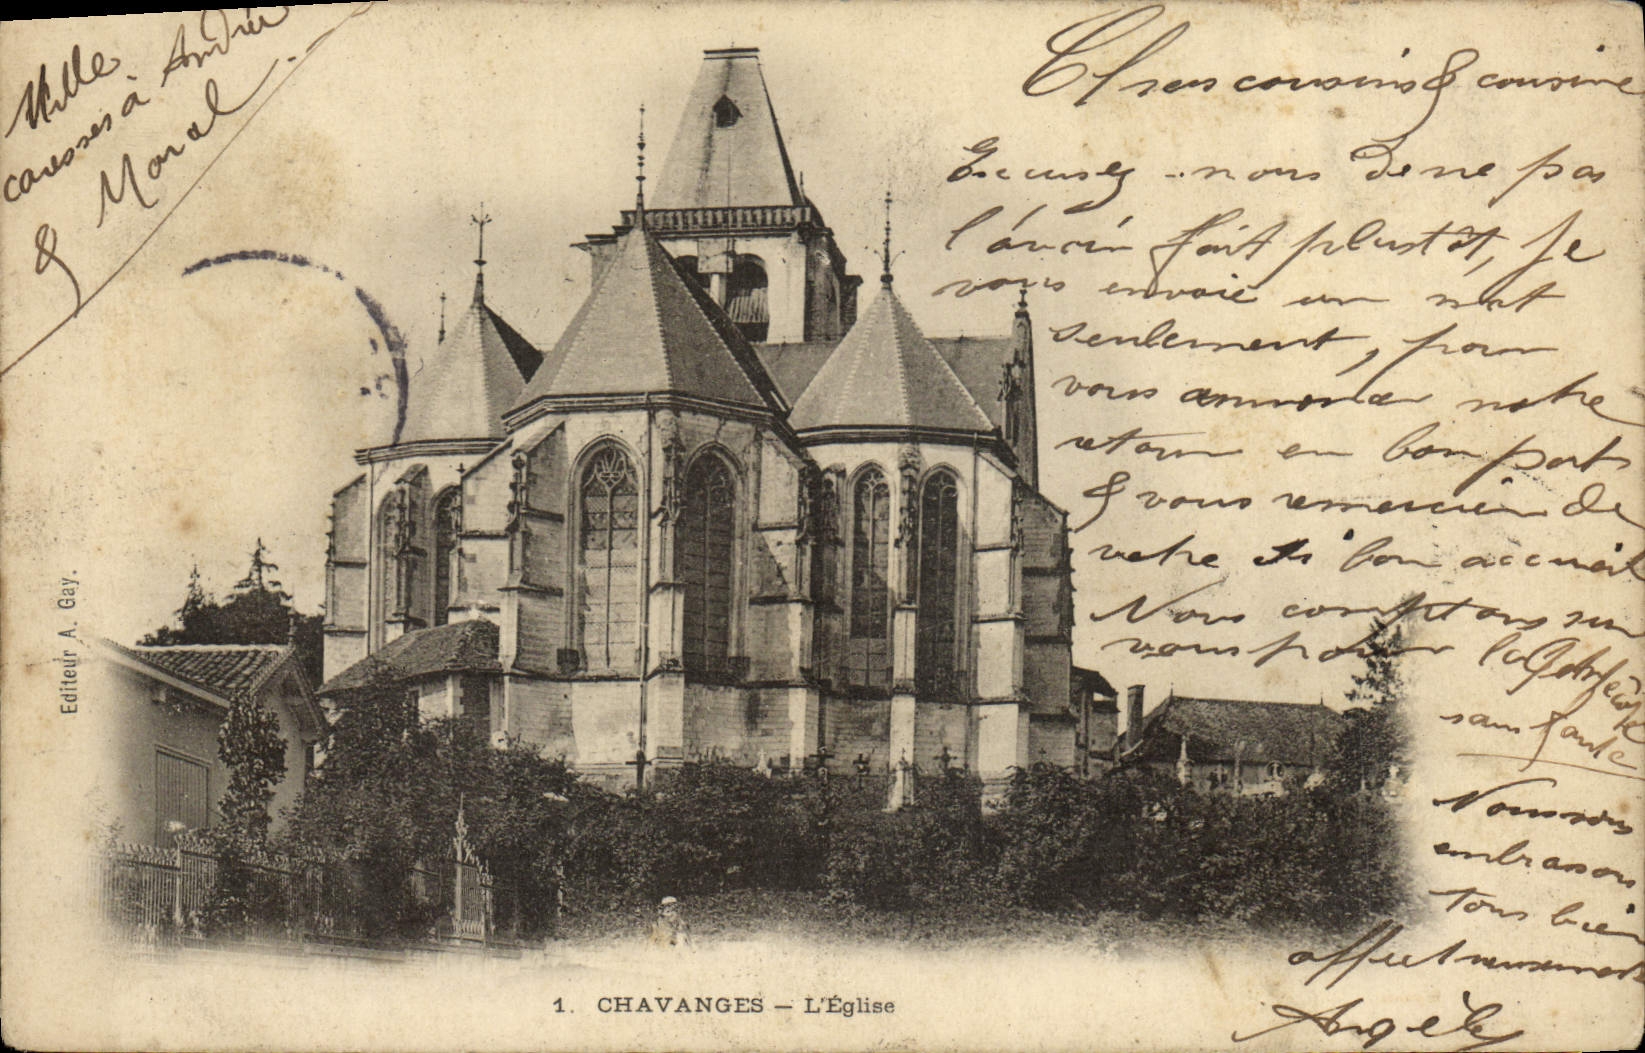 Mille
caresses à Andrée
& Marcel
Chers cousins & cousine
Excusez-nous de ne pas
l'avoir fait plustôt, Je
vous envoie un mot
seulement, pour
vous annoncer notre
retour en bon port
& vous remercier de
votre si bon accueil
Nous comptons sur
vous pour la
sans faute
Nous vous
embrassons
tous bien
affectueusement
Angèle
Editeur A. Gay.
1. CHAVANGES — L'Église